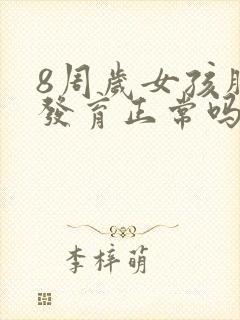 8周歲女孩
發育正常吗
李梓萌